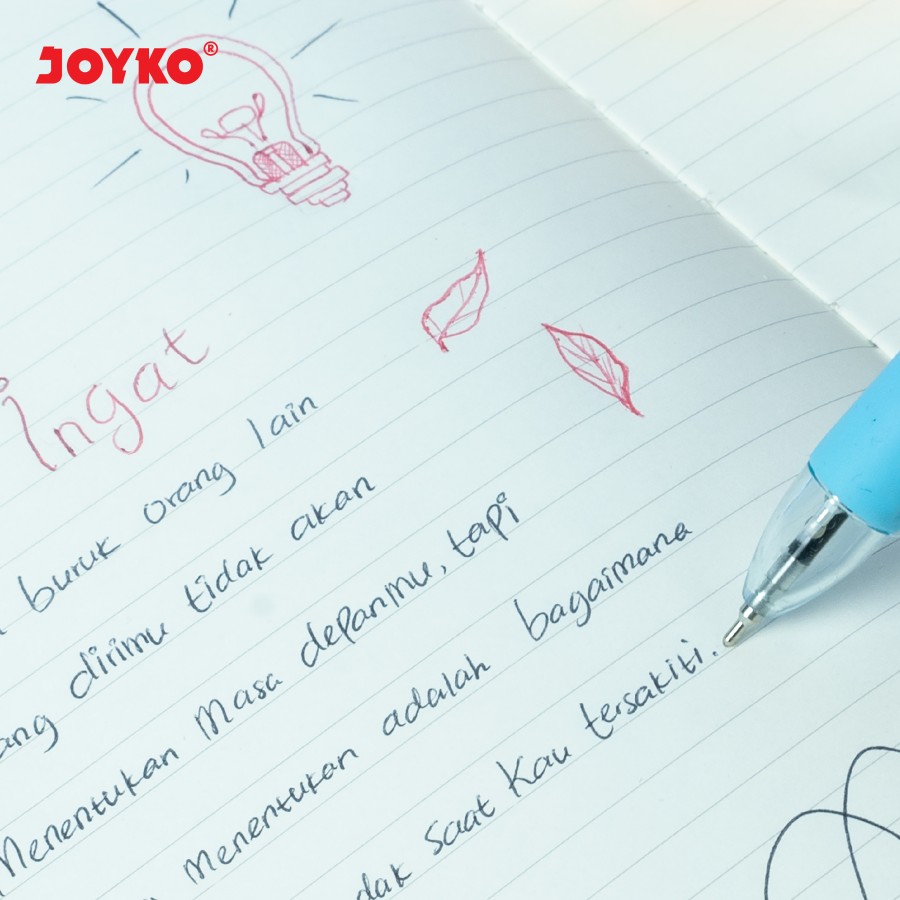 JOYKO®
Ingat
buruk orang lain
dirimu tidak akan
Menentukan Masa depanmu, tapi
Menentukan adalah bagaimana
saat Kau tersakiti.